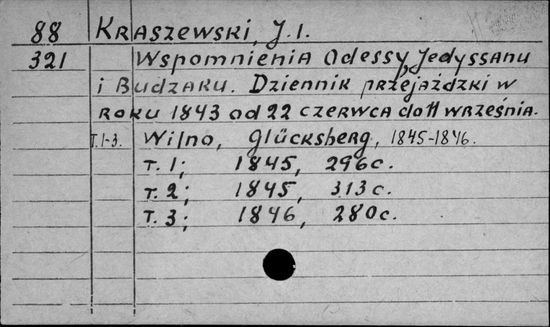 88 Kraszewski, J.I.
321 Wspomnienia Odessy, Jedyssanu
i Budżaku. Dziennik przejażdzki w
roku 1843 od 22 czerwca do 11 września.
T.1-3. Wilno, Glücksberg, 1845-1846.
T. 1; 1845, 296c.
T. 2; 1845, 313c.
T. 3; 1846, 280c.